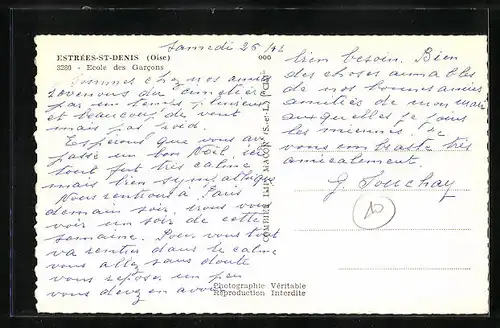 Samedi 26/12
ESTRÉES-ST-DENIS (Oise) 000
3280 - Ecole des Garçons
Sommes chez nos amis
revenons du cimetière
par un temps pluvieux
et beaucoup de vent
mais pas froid
Espérons que vous avez
passé un bon Noël ici
tout fut très calme
mais bien sympathique
Nous rentrons à Paris
demain soir, irons vous
voir un soir de cette
semaine. Pour vous tout
va rentrer dans le calme
vous allez sans doute
vous reposer un peu
vous devez en avoir
bien besoin. Bien
des choses aimables
de nos bonnes amies
amitiés de mon mari
auxquelles je joins
les miennes. Je
vous embrasse très
amicalement.
G. Souchay
10
COMBIER IMP. MACON (S.-et-L.)
Photographie Véritable
Reproduction Interdite